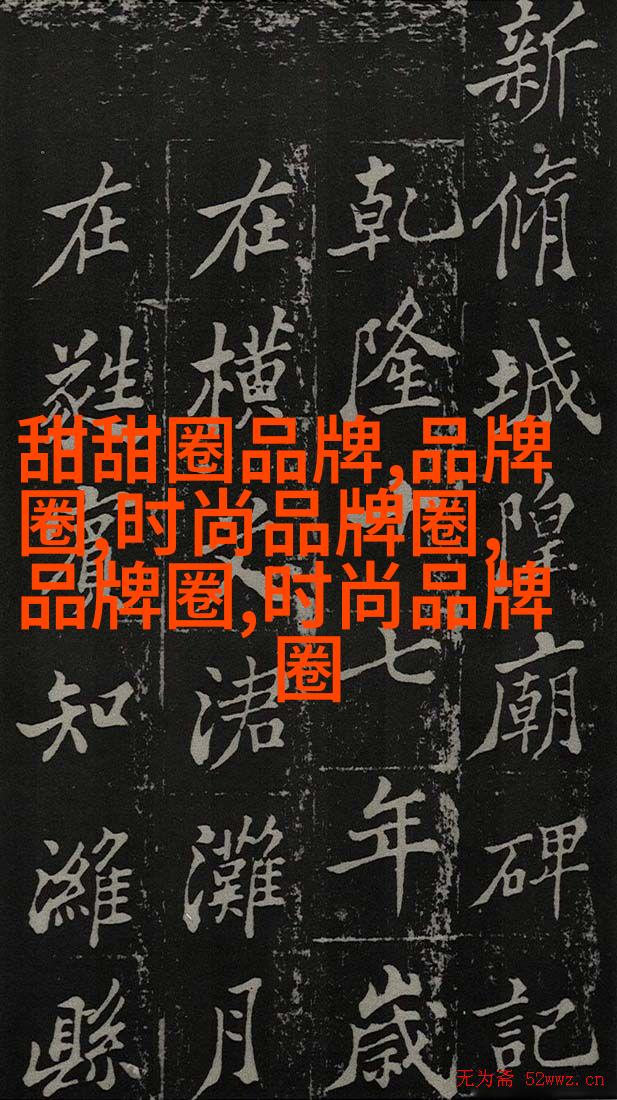 甜甜圈品牌,品牌
圈,时尚品牌圈,
品牌圈,时尚品牌
圈
新脩城隍廟碑記
乾隆七年歲
在横涒灘月
在知濰縣
无为斋 52wwz.cn